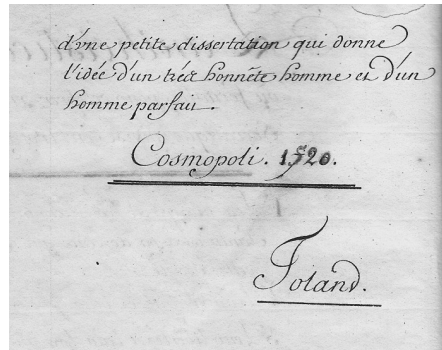 d'vne petite dissertation qui donne
l'idée d'un trés honnéte homme et d'un
homme parfait.
Cosmopoli. 1720.
Toland.